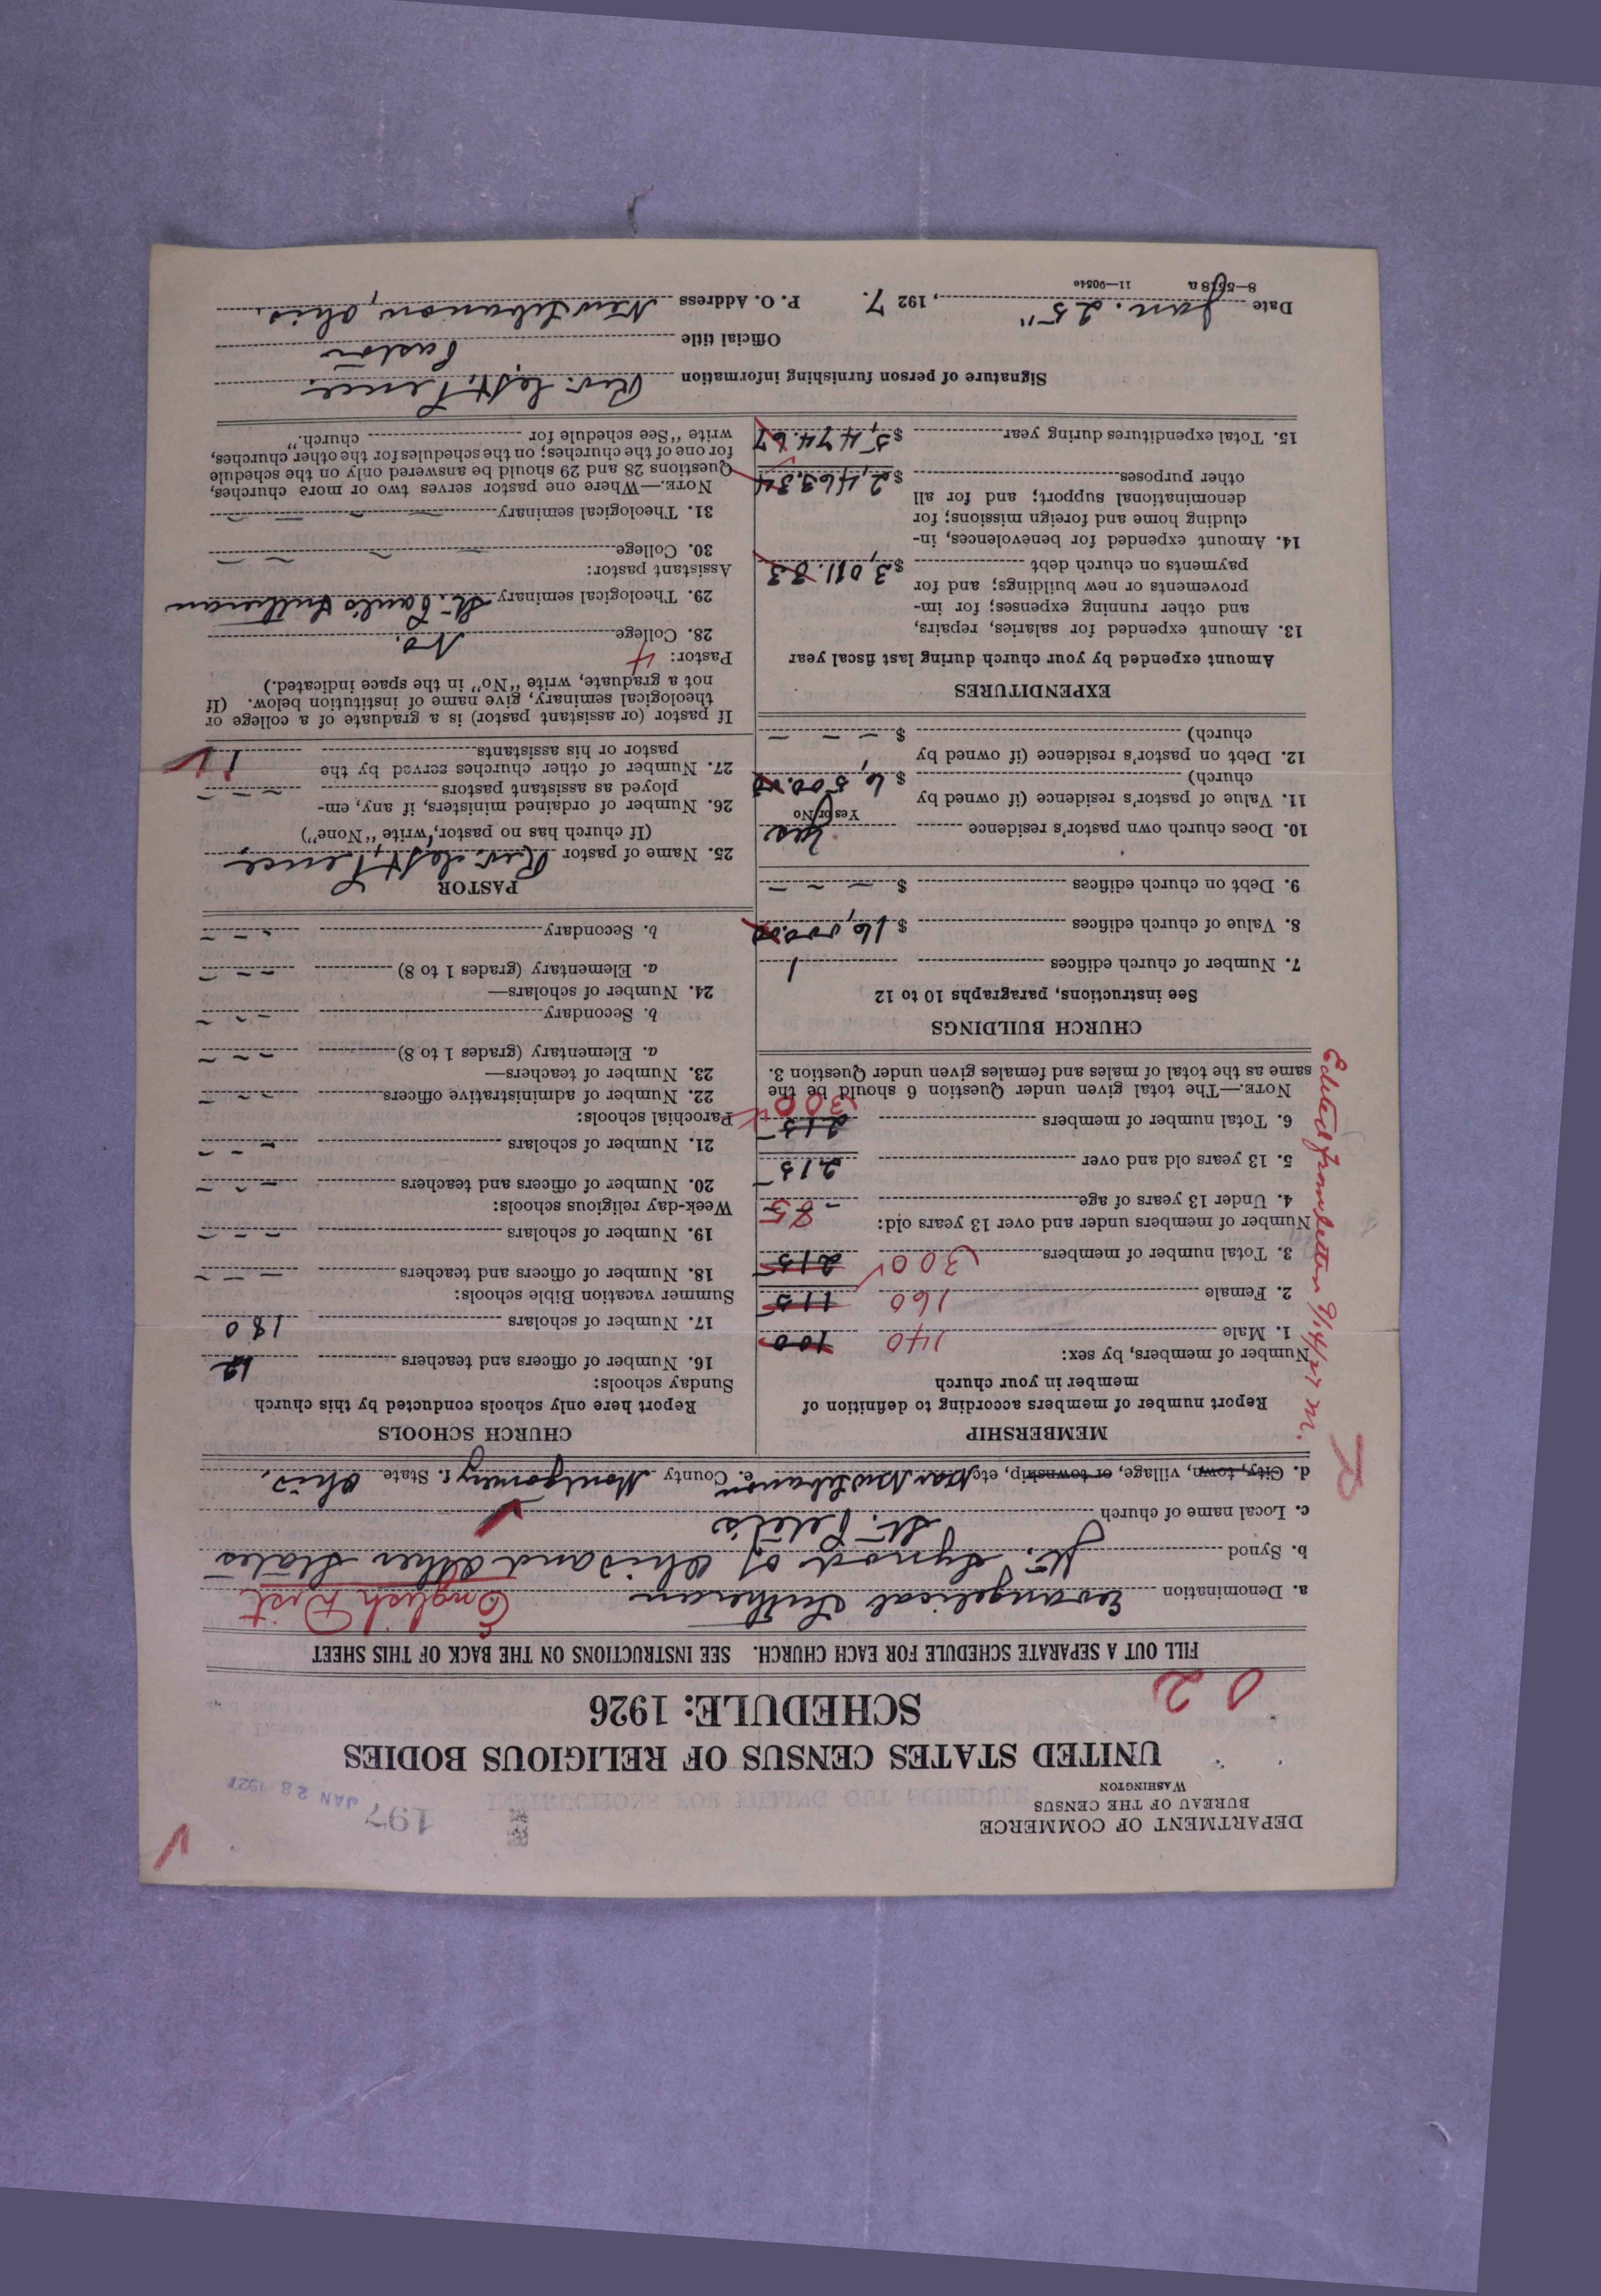 DEPARTMENT OF COMMERCE
BUREAU OF THE CENSUS
WASHINGTON
197
JAN 28 1927
UNITED STATES CENSUS OF RELIGIOUS BODIES
SCHEDULE: 1926
0 2
FILL OUT A SEPARATE SCHEDULE FOR EACH CHURCH. SEE INSTRUCTIONS ON THE BACK OF THIS SHEET
a. Denomination Evangelical Lutheran English Dist
b. Synod Jt. Synod of Ohio and Other States
c. Local name of church St. Peter's
d. City, town, village, or township, etc. Near New Lebanon e. County Montgomery f. State Ohio.
MEMBERSHIP
Report number of members according to definition of
member in your church
Number of members, by sex:
1. Male 140 100
2. Female 160 115
3. Total number of members 300 215
Number of members under and over 13 years old:
4. Under 13 years of age 85
5. 13 years old and over 215
6. Total number of members 215 300
NOTE.—The total given under Question 6 should be the
same as the total of males and females given under Question 3.
Edited from letter 9/14/27 M.
CHURCH BUILDINGS
See instructions, paragraphs 10 to 12
7. Number of church edifices 1
8. Value of church edifices $ 16,000.00
9. Debt on church edifices $ – – –
10. Does church own pastor's residence Yes
Yes or No
11. Value of pastor's residence (if owned by
church) $ 6,500.00
12. Debt on pastor's residence (if owned by
church) $ – – –
EXPENDITURES
Amount expended by your church during last fiscal year
13. Amount expended for salaries, repairs,
and other running expenses; for im-
provements or new buildings; and for
payments on church debt $ 3,011.33
14. Amount expended for benevolences, in-
cluding home and foreign missions; for
denominational support; and for all
other purposes $ 2,463.34
15. Total expenditures during year $ 5,474.67
CHURCH SCHOOLS
Report here only schools conducted by this church
Sunday schools:
16. Number of officers and teachers 12
17. Number of scholars 180
Summer vacation Bible schools:
18. Number of officers and teachers – – –
19. Number of scholars – – –
Week-day religious schools:
20. Number of officers and teachers – – –
21. Number of scholars – – –
Parochial schools:
22. Number of administrative officers – – –
23. Number of teachers—
a. Elementary (grades 1 to 8) – – –
b. Secondary – – –
24. Number of scholars—
a. Elementary (grades 1 to 8) – – –
b. Secondary – – –
PASTOR
25. Name of pastor Rev. Pence
(If church has no pastor, write "None")
26. Number of ordained ministers, if any, em-
ployed as assistant pastors – – –
27. Number of other churches served by the
pastor or his assistants 1
If pastor (or assistant pastor) is a graduate of a college or
theological seminary, give name of institution below. (If
not a graduate, write "No" in the space indicated.)
Pastor: 4
28. College No.
29. Theological seminary St. Paul's Lutheran
Assistant pastor:
30. College – – –
31. Theological seminary – – –
NOTE.—Where one pastor serves two or more churches,
Questions 28 and 29 should be answered only on the schedule
for one of the churches; on the schedules for the other churches,
write "See schedule for church."
Signature of person furnishing information Rev. Pence
Official title Pastor
Date Jan. 25", 1927. P. O. Address New Lebanon, Ohio.
8—5518 a 11—9054c